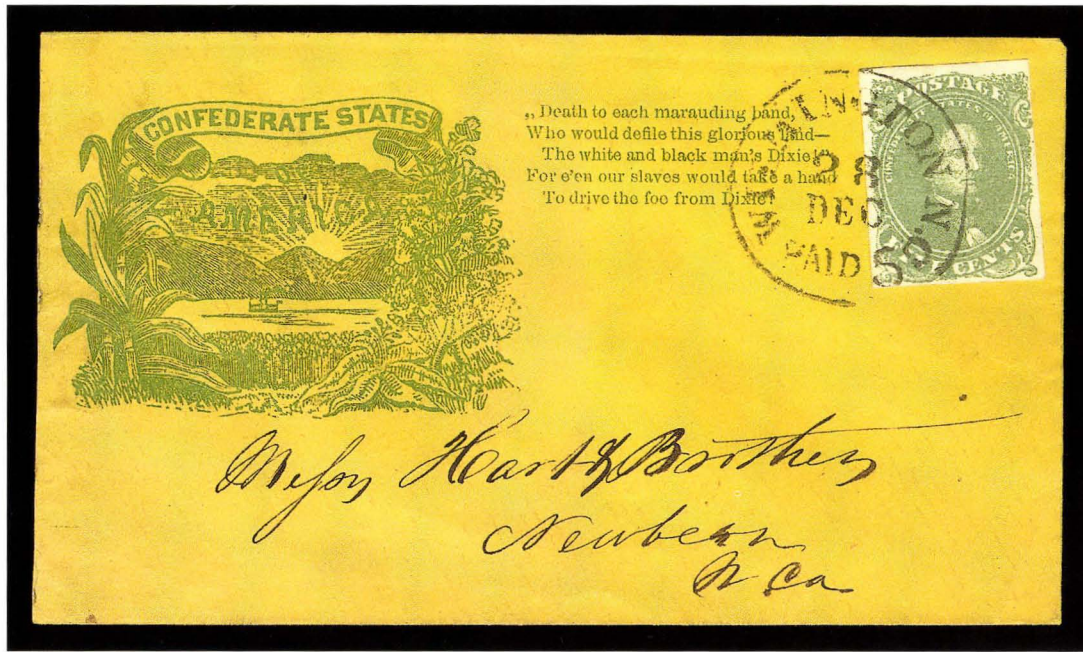 CONFEDERATE STATES
AMERICA
„ Death to each marauding band,
Who would defile this glorious land—
The white and black man's Dixie!
For e'en our slaves would take a hand
To drive the foe from Dixie!
WILMINGTON N.C.
28
DEC
PAID 5
POSTAGE
CONFEDERATE STATES OF AMERICA
FIVE CENTS
Messrs Hart & Brothers
Newbern
N Ca